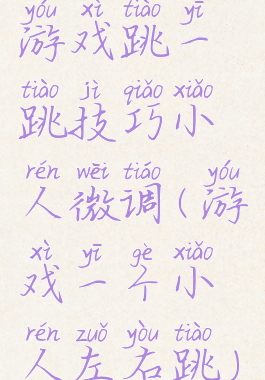 yóu xì tiào yī
游戏跳一
tiào jì qiǎo xiǎo
跳技巧小
rén wēi tiáo yóu
人微调(游
xì yī gè xiǎo
戏一个小
rén zuǒ yòu tiào
人左右跳)